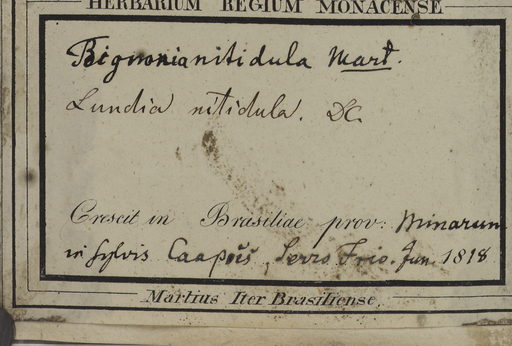 HERBARIUM REGIUM MONACENSE
Bignonia nitidula Mart.
Lundia nitidula. DC.
Crescit in Brasiliae prov: Minarum
in sylvis Caapoës, Serro Frio. Jun. 1818
Martius Iter Brasiliense.